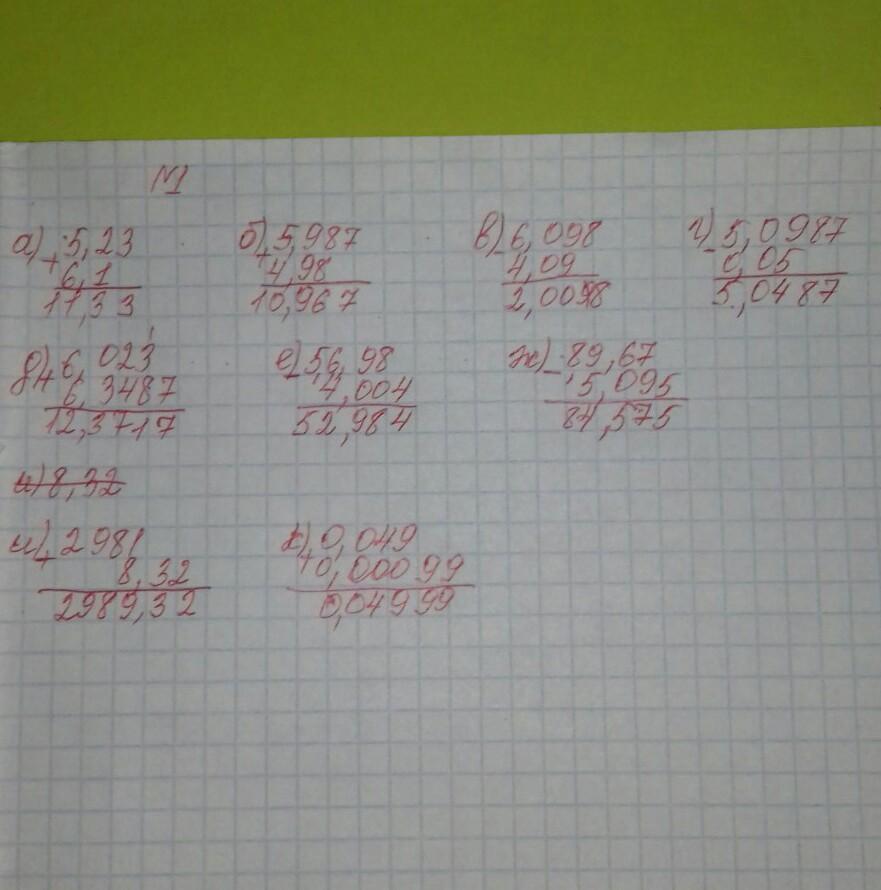 №1
а) 5,23 б) 5,987 в) 6,098 г) 5,0987
+ 6,1 + 4,98 - 4,09 - 0,05
11,33 10,967 2,0098 5,0487
д) 6,023 е) 56,98 ж) 89,67
+ 6,3487 - 4,004 - 5,095
12,3717 52,984 84,575
и) 8,32
и) 2981 к) 0,049
+ 8,32 + 0,00099
2989,32 0,04999